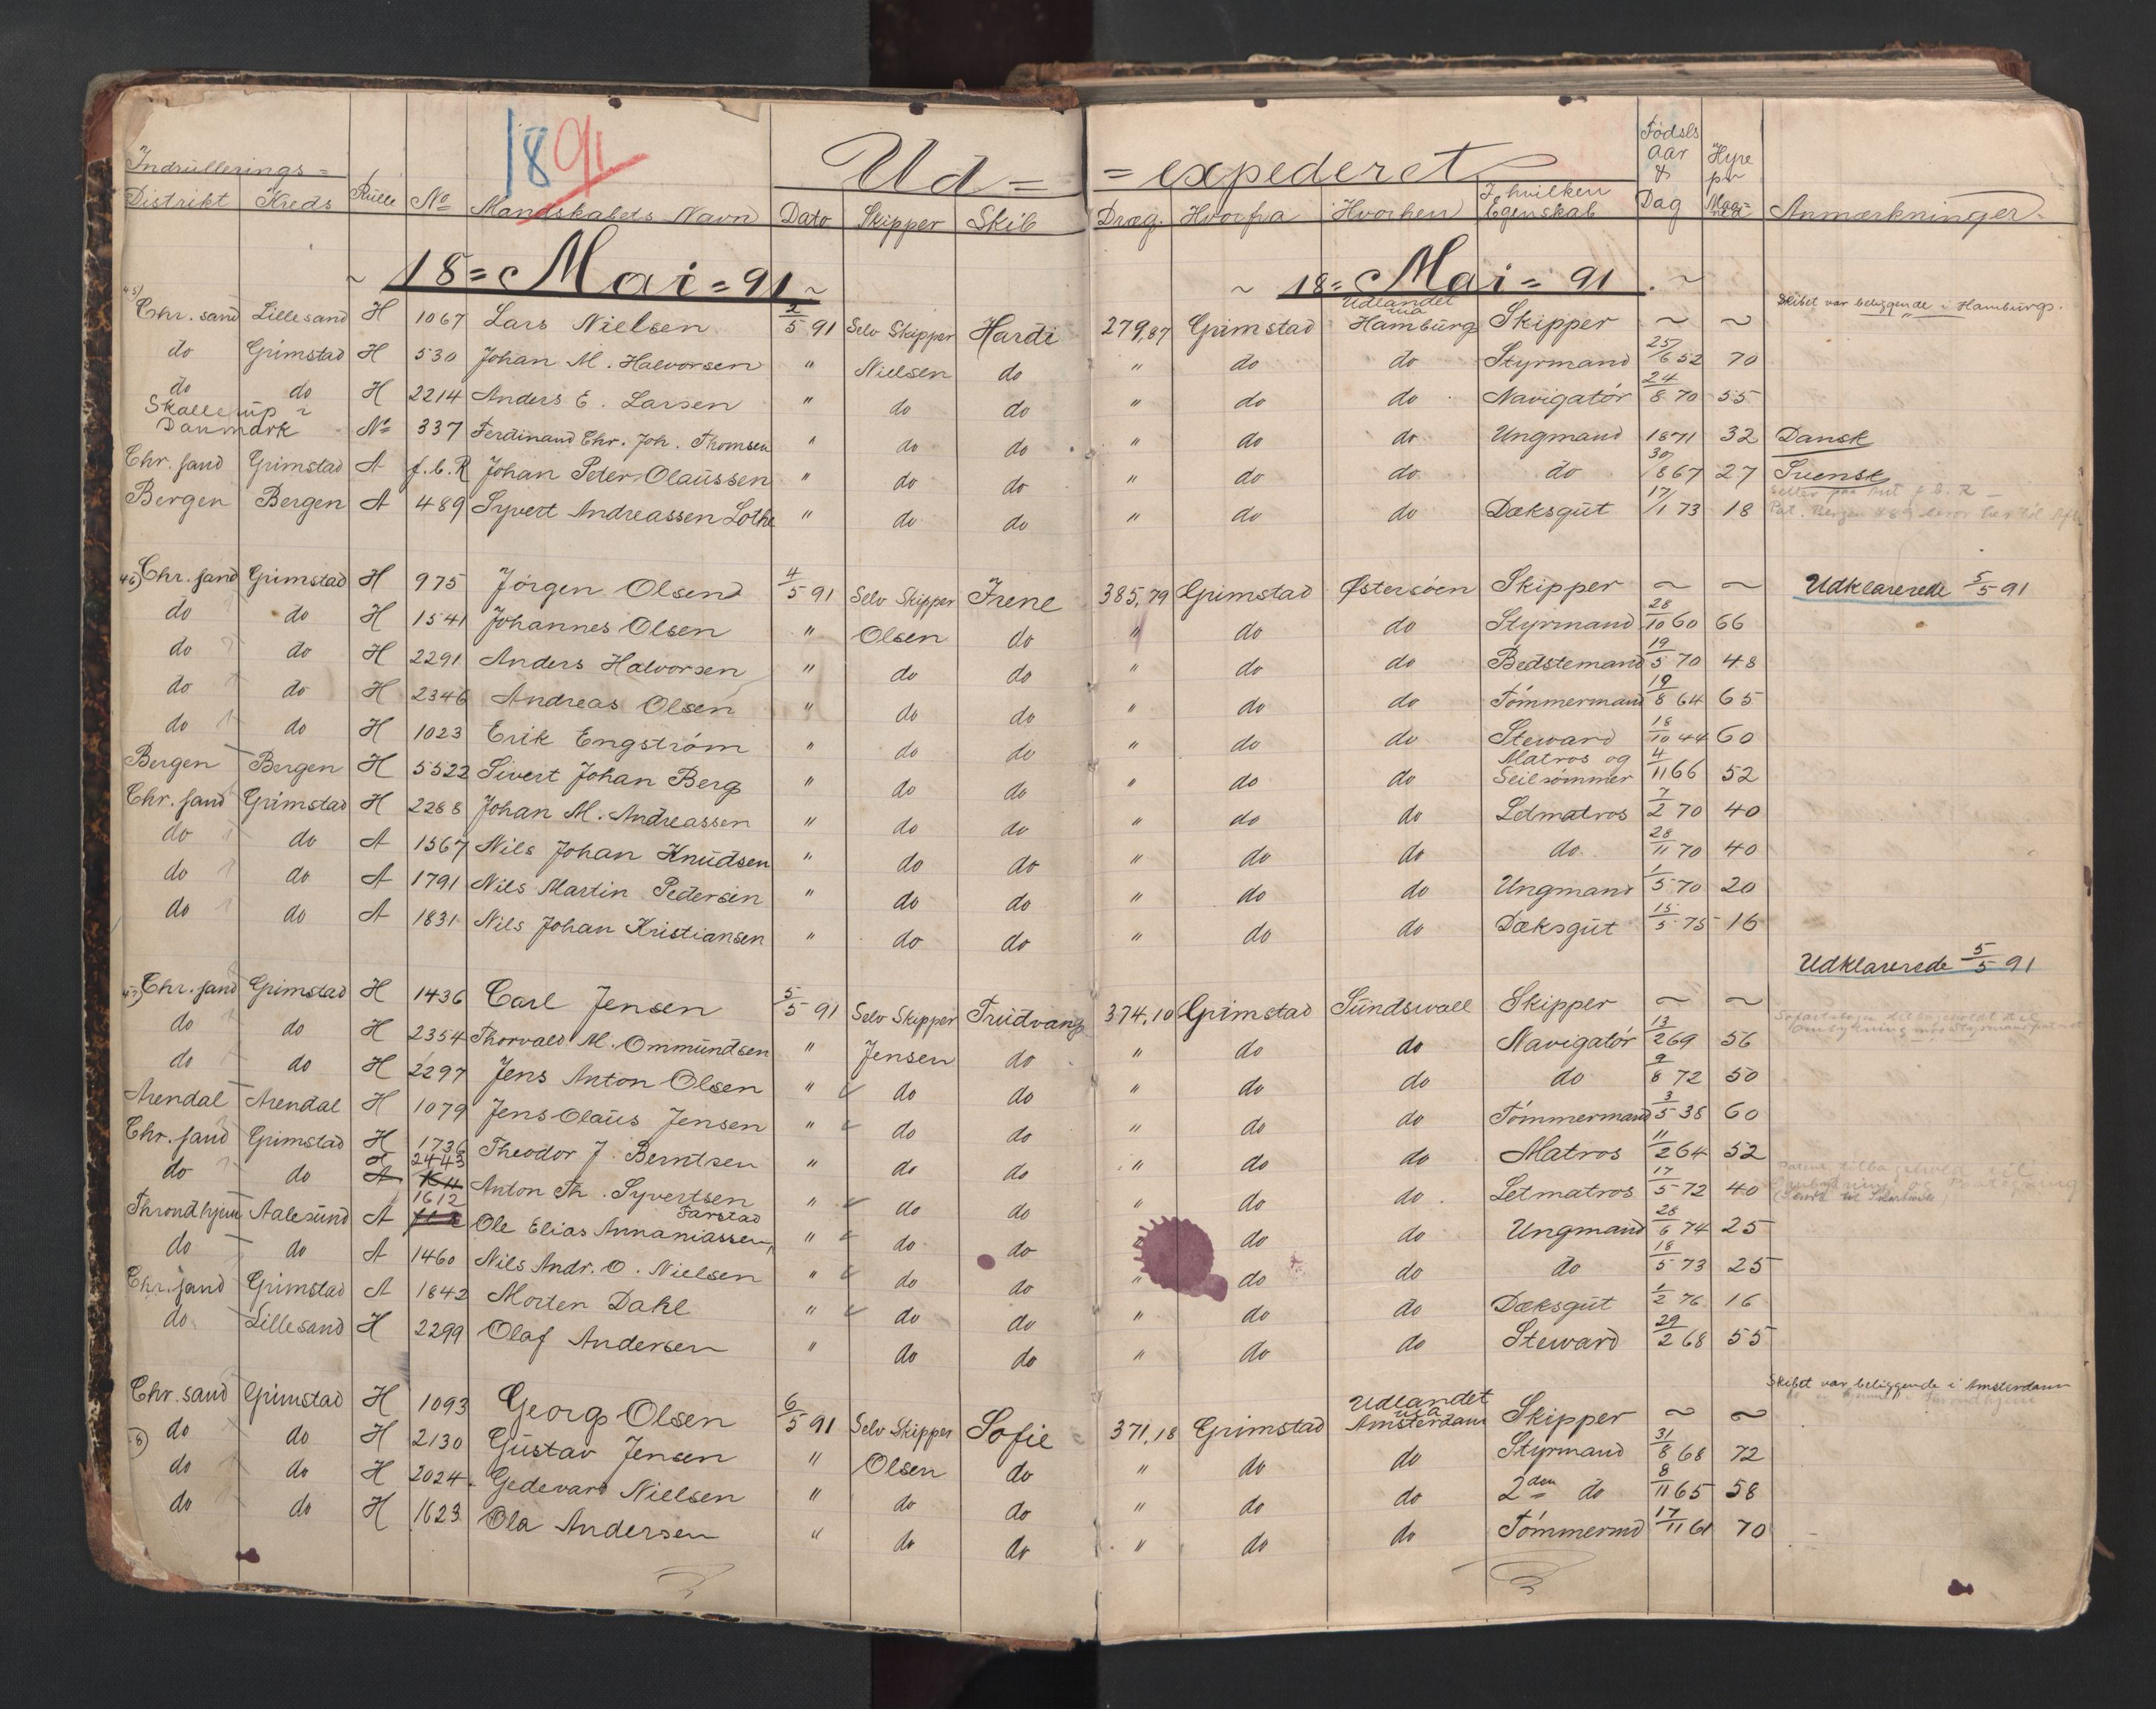 1891
Ud= =expederet
Indrullerings=
Distrikt Kreds Rulle No Mandskabets Navn Dato Skipper Skib Dræg. Hvorfra Hvorhen I hvilken Egenskab Fødsels aar & Dag Hyre pr Maaned Anmærkninger
~ 18=Mai=91 ~ ~ 18=Mai=91. ~
45) Chr.sand Lillesand H 1067 Lars Nielsen 2/5 91 Selv Skipper Hardi 279,87 Grimstad Udlandet via Hamburg Skipper ~ ~ Skibet var beliggende i Hamburg.
do Grimstad H 530 Johan M. Halvorsen " Nielsen do " do do Styrmand 25/6 52 70
do do H 2214 Anders E. Larsen " do do " do do Navigatör 24/8 70 55
Skallerup Danmark No 337 Ferdinand Chr. Joh. Thomsen " do do " do do Ungmand 1871 32 Dansk
Chr.sand Grimstad A f.b.R Johan Peter Olaussen " do do " do do do 30/8 67 27 Svensk
Bergen Bergen A 489 Syvert Andreassen Lothe " do do " do do Dæksgut 17/1 73 18
46) Chr.sand Grimstad H 975 Jörgen Olsen 4/5 91 Selv Skipper Irene 385,79 Grimstad Østersöen Skipper ~ ~ Udklarerede 5/5 91
do do H 1541 Johannes Olsen " Olsen do " do do Styrmand 28/10 60 66
do do H 2291 Anders Halvorsen " do do " do do Bedstemand 19/5 70 48
do do H 2346 Andreas Olsen " do do " do do Tömmermand 19/8 64 65
do do H 1023 Erik Engström " do do " do do Steward 18/10 44 60
Bergen Bergen H 5522 Sivert Johan Berg " do do " do do Matros og Seilsömmer 4/11 66 52
Chr.sand Grimstad H 2288 Johan M. Andreassen " do do " do do Letmatros 7/2 70 40
do do A 1567 Nils Johan Knudsen " do do " do do do 28/11 70 40
do do A 1791 Nils Martin Pedersen " do do " do do Ungmand 1/5 70 20
do do A 1831 Nils Johan Kristiansen " do do " do do Dæksgut 15/5 75 16
Udklarerede 5/5 91
47) Chr.sand Grimstad H 1436 Carl Jensen 5/5 91 Selv Skipper Trudvang 374,10 Grimstad Sundswall Skipper ~ ~
do do H 2354 Thorvald M. Ommundsen " Jensen do " do do Navigatör 13/2 69 56
do do H 2297 Jens Anton Olsen " do do " do do do 9/8 72 50
Arendal Arendal H 1079 Jens Olaus Jensen " do do " do do Tömmermand 3/5 38 60
Chr.sand Grimstad H 1736 Theodor J. Berntsen " do do " do do Matros 11/2 64 52
do do H 2443 Anton Th. Syvertsen " do do " do do Letmatros 17/5 72 40
Throndhjem Aalesund A 1612 Ole Elias Annaniassen Farstad " do do " do do Ungmand 28/6 74 25
do do A 1460 Nils Andr. O. Nielsen " do do " do do do 18/5 73 25
Chr.sand Grimstad A 1842 Morten Dahl " do do " do do Dæksgut 1/2 76 16
do Lillesand H 2299 Olaf Andersen " do do " do do Steward 29/2 68 55
Chr.sand Grimstad H 1093 Georg Olsen 6/5 91 Selv Skipper Sofie 371,18 Grimstad Udlandet via Amsterdam Skipper ~ ~ Skibet var beliggende i Amsterdam
do do H 2130 Gustav Jensen " Olsen do " do do Styrmand 31/8 68 72
do do H 2024 Gedevard Nielsen " do do " do do 2den do 8/11 65 58
do do H 1623 Ola Andersen " do do " do do Tömmermd 17/11 61 70